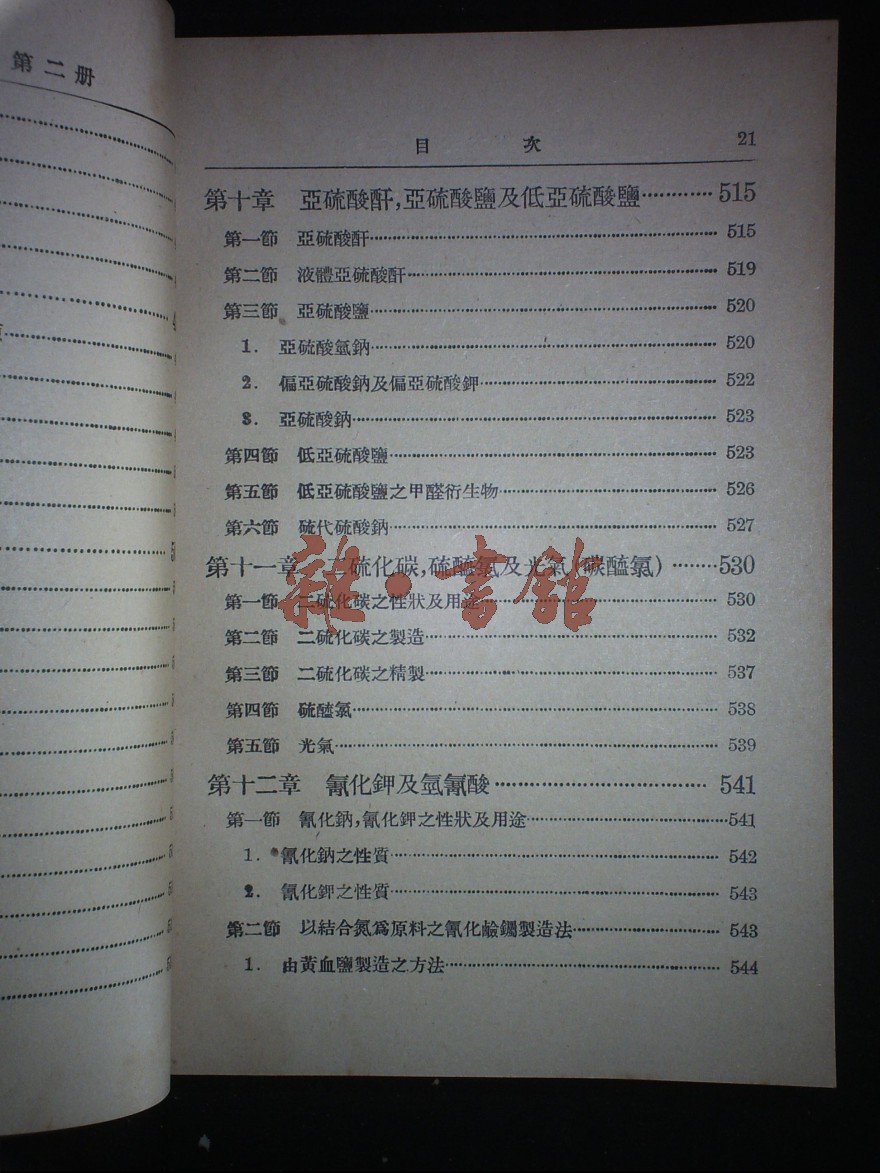 第二册
目 次 21
第十章 亞硫酸酐,亞硫酸鹽及低亞硫酸鹽············515
第一節 亞硫酸酐············515
第二節 液體亞硫酸酐············519
第三節 亞硫酸鹽············520
1. 亞硫酸氫鈉············520
2. 偏亞硫酸鈉及偏亞硫酸鉀············522
3. 亞硫酸鈉············523
第四節 低亞硫酸鹽············523
第五節 低亞硫酸鹽之甲醛衍生物············526
第六節 硫代硫酸鈉············527
第十一章 二硫化碳,硫醯氯及光氣(碳醯氯)·······530
雜·書館
第一節 二硫化碳之性狀及用途············530
第二節 二硫化碳之製造············532
第三節 二硫化碳之精製············537
第四節 硫醯氯············538
第五節 光氣············539
第十二章 氰化鉀及氫氰酸············541
第一節 氰化鈉,氰化鉀之性狀及用途············541
1. 氰化鈉之性質············542
2. 氰化鉀之性質············543
第二節 以結合氮爲原料之氰化鹼鐲製造法············543
1. 由黃血鹽製造之方法············544